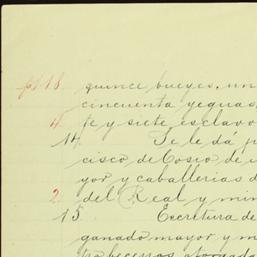 pl 18 quince bueyes, un
cincuenta yeguas,
4 te y siete esclavo
14 Se le dá p
cisco de Cosio de
yor y caballerias d
2 del Real y min
15 Escritura de
ganado mayor y m